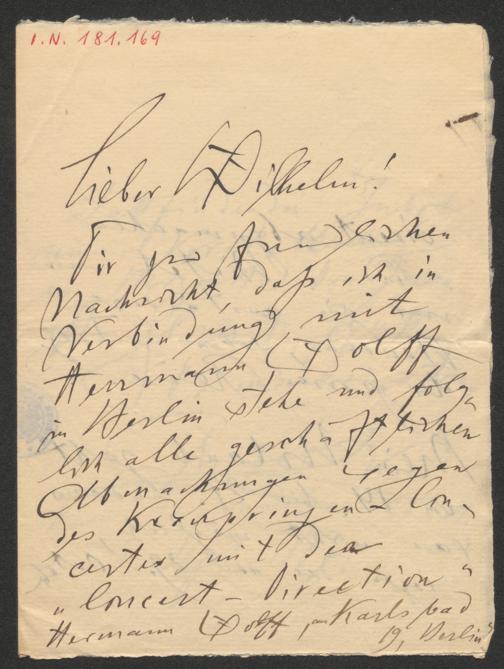 I.N. 181.169
Lieber Wilhelm!
Dir zur freundlichen
Nachricht, daß ich in
Verbindung mit
Herrmann Wolff
in Berlin stehe und folg-
lich alle geschäftlichen
Abmachungen wegen
des Con-
certes mit der
„Concert-Direction"
Hermann Wolff, am Karlsbad
19, Berlin"